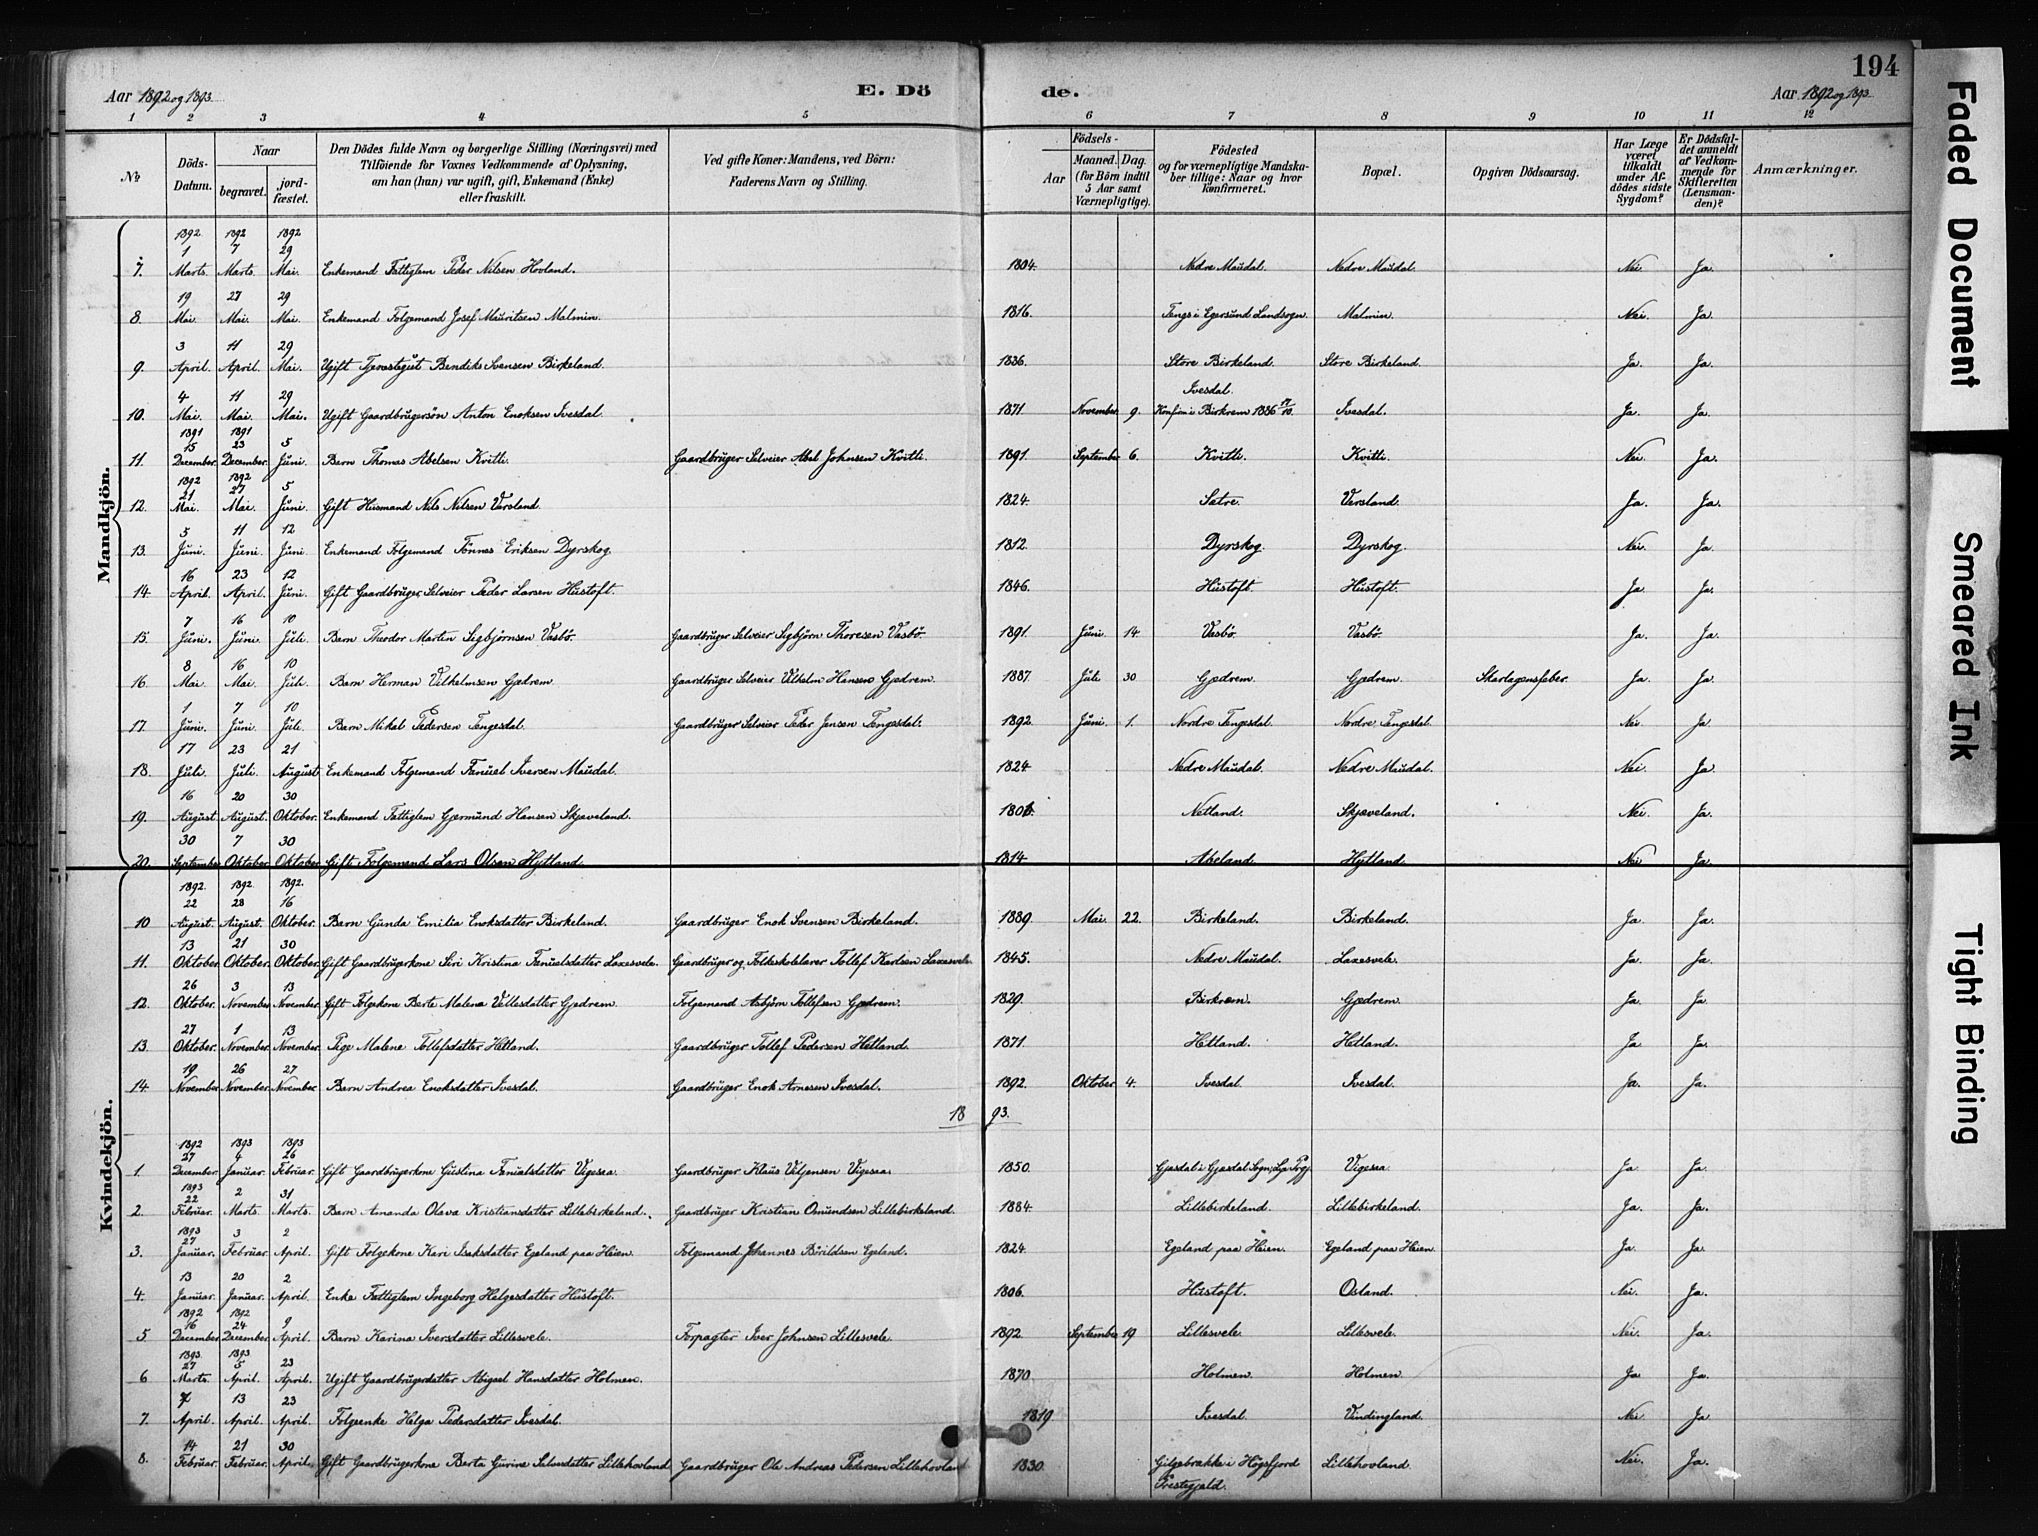 194
Aar 1892 og 1893 E. Dö de. Aar 1892 og 1893
1 2 3 4 5 6 7 8 9 10 11 12
No Döds-Datum. Naar begravet. jordfæstet. Den Dödes fulde Navn og borgerlige Stilling (Næringsvei) med Tilföiende for Voxnes Vedkommende af Oplysning, om han (hun) var ugift, gift, Enkemand (Enke) eller fraskilt. Ved gifte Koner: Mandens, ved Börn: Faderens Navn og Stilling. Födsels- Aar Maaned. Dag. (for Börn indtil 5 Aar samt Værnepligtige). Födested og for værnepligtige Mandskaber tillige: Naar og hvor Konfirmeret. Bopæl. Opgiven Dödsaarsag. Har Læge været tilkaldt under Afdödes sidste Sygdom? Er Dödsfaldet anmeldt af Vedkommende for Skifteretten (Lensmanden)? Anmærkninger.
Mandkjön.
1892 1892 1892
1 7 29
7. Marts. Marts. Mai. Enkemand Fattiglem Peder Nilsen Hovland. 1804. Nedre Maudal. Nedre Maudal. Nei. Ja.
19 27 29
8. Mai. Mai. Mai. Enkemand Folgemand Josef Mauritsen Malmin. 1816. Tengs i Egersund Landsogn. Malmin. Nei. Ja.
3 11 29
9. April. April. Mai. Ugift Tjenestegut Bendiks Svensen Birkeland. 1836. Store Birkeland. Store Birkeland. Ja. Ja.
4 11 29 Ivesdal.
10. Mai. Mai. Mai. Ugift Gaardbrugersön Anton Enoksen Ivesdal. 1871 November. 9. Konfirm i Birkrem 1886 17/10. Ivesdal. Ja. Ja.
1891 1891
15 23 5
11. December. December. Juni. Barn Thomas Abelsen Kvitti. Gaardbruger Selveier Abel Johnsen Kvitti. 1891. September 6. Kvitti. Kvitti. Nei. Ja.
1892 1892
21 27 5
12. Mai. Mai. Juni. Gift Husmand Nils Nilsen Versland. 1824. Sætre. Versland. Ja. Ja.
5 11 12
13. Juni. Juni. Juni. Enkemand Folgemand Tönnes Eriksen Dyrskog. 1812. Dyrskog. Dyrskog. Nei. Ja.
16 23 12
14. April. April. Juni. Gift Gaardbruger Selveier Peder Larsen Hustoft. 1846. Hustoft. Hustoft. Ja. Ja.
7 16 10
15. Juni. Juni. Juli. Barn Theodor Martin Sigbjörnsen Vasbö. Gaardbruger Selveier Sigbjörn Thoresen Vasbö. 1891. Juni. 14. Vasbö. Vasbö. Ja. Ja.
8 16 10
16. Mai. Mai. Juli. Barn Herman Vilhelmsen Gjedrem. Gaardbruger Selveier Vilhelm Hansen Gjedrem. 1887. Juli. 30 Gjedrem. Gjedrem. Skarlagensfeber. Ja. Ja.
1 7 10
17. Juni. Juni. Juli. Barn Mikal Pedersen Tengesdal. Gaardbruger Selveier Peder Jensen Tengesdal. 1892. Juni. 1. Nordre Tengesdal. Nordre Tengesdal. Nei. Ja
17 23 21
18. Juli. Juli. August. Enkemand Folgemand Fanuel Iversen Maudal. 1824. Nedre Maudal. Nedre Maudal. Nei. Ja
16 20 30
19. August. August. Oktober. Enkemand Fattiglem Gjermund Hansen Skjæveland. 1806. Netland. Skjæveland. Nei. Ja.
30 7 30
20. September Oktober. Oktober Gift Folgemand Lars Olsen Hytland. 1814 Abeland. Hytland. Nei Ja.
Kvindekjön.
1892. 1892 1892.
22 28 16
10 August. August. Oktober. Barn Gunda Emilia Enoksdatter Birkeland. Gaardbruger Enok Svensen Birkeland. 1889. Mai. 22. Birkeland. Birkeland. Ja. Ja.
13 21 30
11. Oktober. Oktober. Oktober. Gift Gaardbrugerkone Siri Kristina Fanuelsdatter Laxesvele. Gaardbruger og Folkeskolelærer Tollef Karlsen Laxesvele. 1845. Nedre Maudal. Laxesvele. Ja. Ja.
26 3 13
12. Oktober. November. November. Gift Folgekone Berte Malena Vellesdatter Gjedrem. Folgemand Asbjörn Tollefsen Gjedrem. 1829. Birkrem. Gjedrem. Ja. Ja
27 1 13
13. Oktober. November. November. Pige Malene Tollefsdatter Hetland. Gaardbruger Tollef Pedersen Hetland. 1871. Hetland. Hetland. Ja Ja.
19 26 27
14. November. November. November. Barn Andrea Enoksdatter Ivesdal. Gaardbruger Enok Arnesen Ivesdal. 1892. Oktober. 4. Ivesdal. Ivesdal. Ja. Ja.
18 93.
1892 1893 1893
27 4 26
1. December. Januar. Februar. Gift Gaardbrugerkone Gustina Fanuelsdatter Vigesaa. Gaardbruger Klaus Viljensen Vigesaa. 1850. Gjesdal i Gjesdal Sogn, Lye Prgj. Vigesaa. Ja Ja.
1893
22 2 31
2. Februar. Marts. Marts. Barn Amanda Olava Kristiansdatter Lillebirkeland. Gaardbruger Kristian Omundsen Lillebirkeland. 1884. Lillebirkeland. Lillebirkeland. Ja. Ja.
1893
27 3 2
3. Januar. Februar. April. Gift Folgekone Kari Isaksdatter Egeland paa Heien. Folgemand Johannes Börildsen Egeland. 1824. Egeland paa Heien. Egeland paa Heien. Ja. Ja.
13 20 2
4. Januar. Januar. April. Enke Fattiglem Ingeborg Helgesdatter Hustoft. 1806. Hustoft. Osland. Nei. Ja.
1892 1892
16 24 9
5 December. December. April. Barn Karina Iversdatter Lillesvele. Forpagter Iver Johnsen Lillesvele. 1892. September 19 Lillesvele. Lillesvele. Nei. Ja.
1893. 1893
27 5 23
6 Marts. April. April. Ugift Gaardbrugerdatter Abigael Hansdatter Holmen. 1870 Holmen. Holmen. Ja Ja.
7 13 23
7. April. April. April. Folgeenke Helga Pedersdatter Ivesdal. 1819 Ivesdal. Vindingland. Nei Ja
14 21 30
8. Februar. Februar. April. Gift Gaardbrugerkone Berta Gurine Salvesdatter Lillehovland Gaardbruger Ole Andreas Pedersen Lillehovland 1830. Gilgebrække i Högsfjord Lillehovland. Nei. Ja.
Prestegjeld.
Faded Document
Smeared Ink
Tight Binding